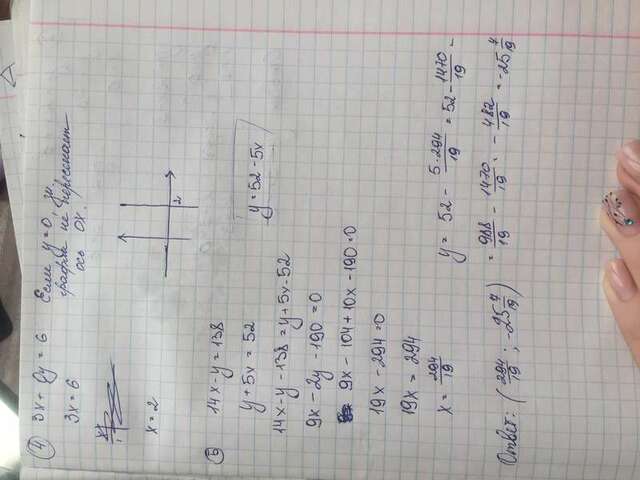 ④ 3x + 0y = 6
3x = 6
x = 2
Если y = 0, то
график не пересекает
ось OX.
2
⑤ 14x - y = 138
y + 5x = 52
y = 52 - 5x
14x - y - 138 = y + 5x - 52
9x - 2y - 190 = 0
9x - 104 + 10x - 190 = 0
19x - 294 = 0
19x = 294
x = 294/19
y = 52 - 5·294/19 = 52 - 1470/19 =
= 988/19 - 1470/19 = - 482/19 = -25 7/19
Ответ: (294/19 ; -25 7/19)